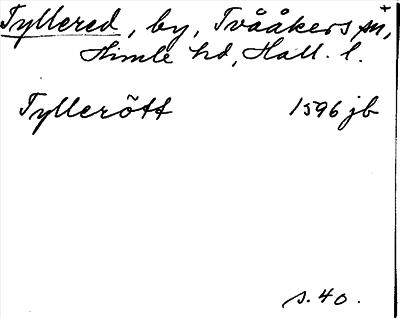 Tyllered, by, Tvååkers sn,
Himle hd, Hall. l.
Tyllerött 1596 jb
s. 40.